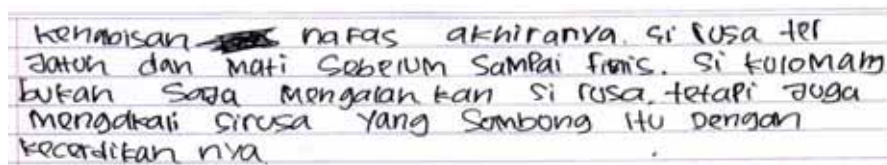 kehabisan nafas akhiranya. si rusa ter
Jatuh dan mati Sebelum Sampai finis. Si kolomam
bukan Saja mengalah kan si rusa. tetapi Juga
mengakali sirusa yang Sombong itu Dengan
kecerdikan nya